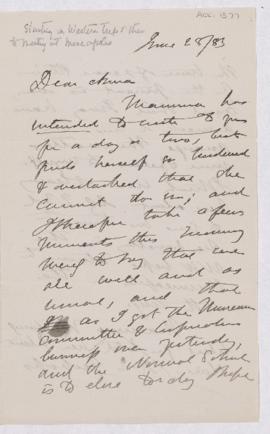 Starting on Western trip & then
to meeting at
ACC. 1577
June 28/83
Dear Anna
Mamma has
intended to write to you
for a day or two, but
finds herself so burdened
& overtasked that she
cannot do so; and
I therefore take a few
moments this morning
merely to say that we
are all well and as
usual, and that
as I got the Museum
Committee & Corporation
business over yesterday,
and the Normal School
is to close to-day I hope